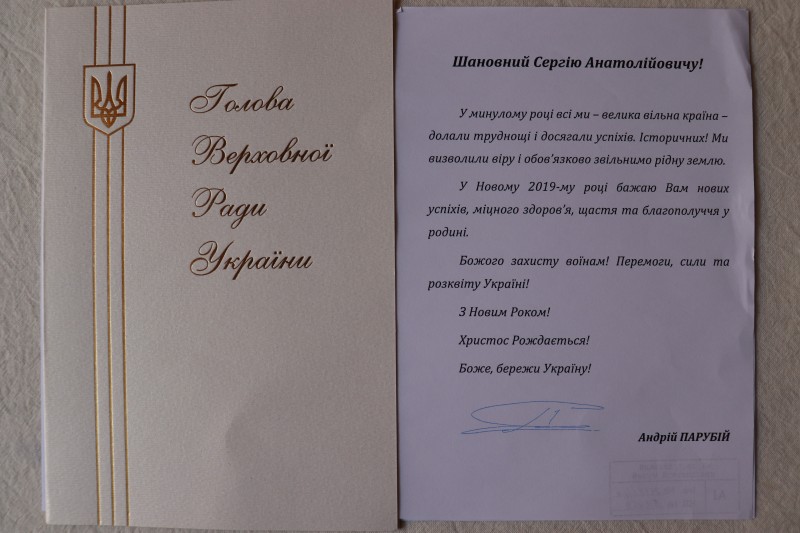 Голова
Верховної
Ради
України
Шановний Сергію Анатолійовичу!
У минулому році всі ми – велика вільна країна –
долали труднощі і досягали успіхів. Історичних! Ми
визволили віру і обов'язково звільнимо рідну землю.
У Новому 2019-му році бажаю Вам нових
успіхів, міцного здоров'я, щастя та благополуччя у
родині.
Божого захисту воїнам! Перемоги, сили та
розквіту Україні!
З Новим Роком!
Христос Рождається!
Боже, бережи Україну!
Андрій ПАРУБІЙ